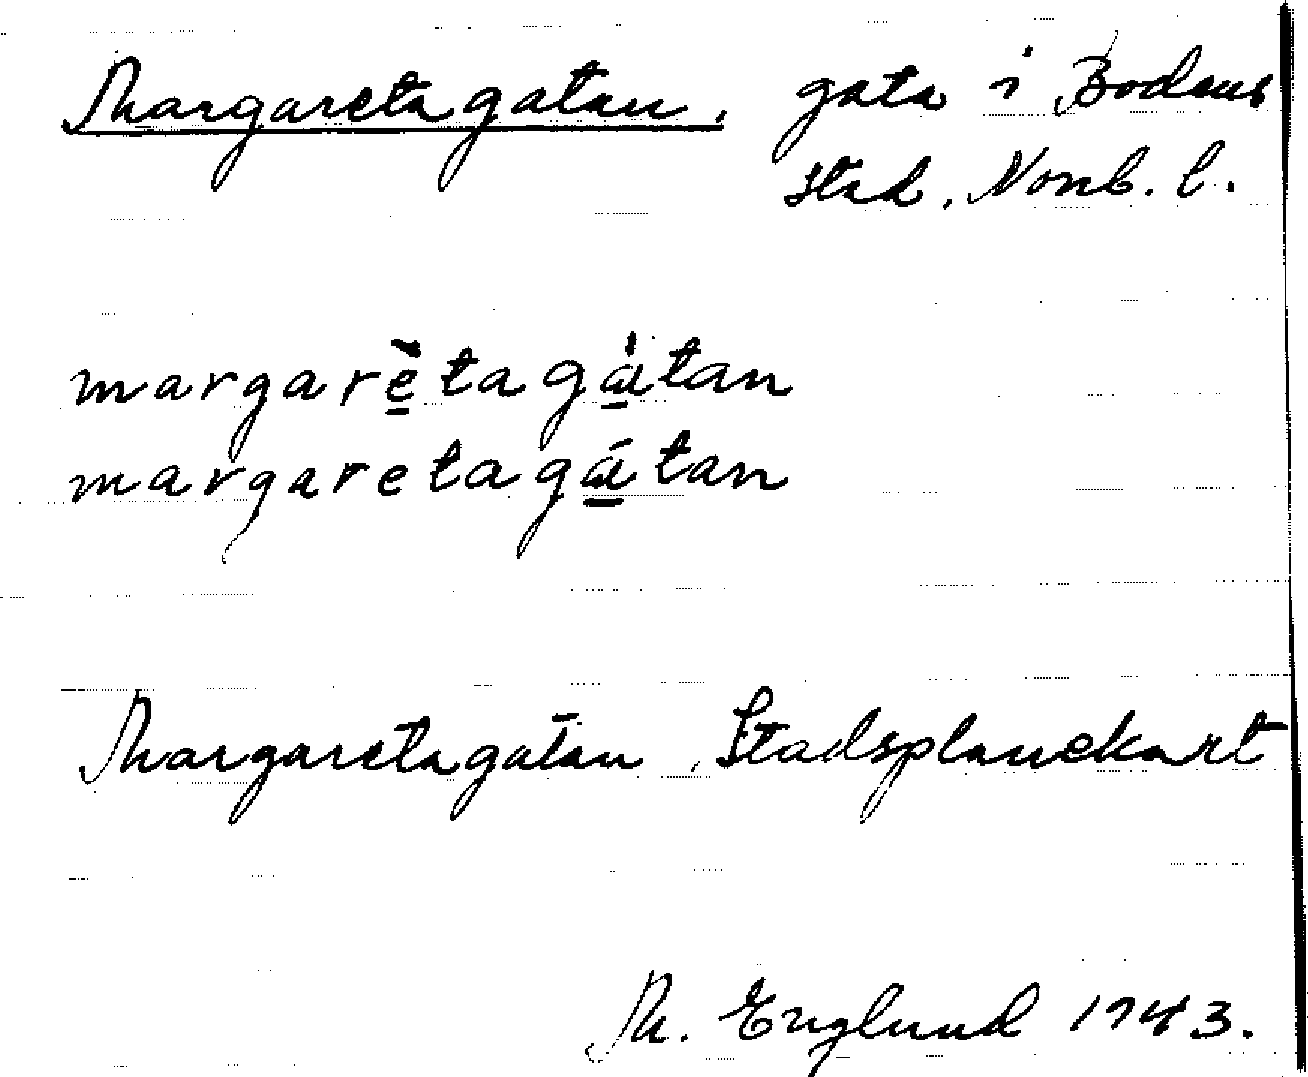 Margaretagatan, gata i Bodens
stad, Nonb. l.
margarètagàtan
margaretagátan
Margaretagatan, Stadsplanekart
M. Englund 1943.